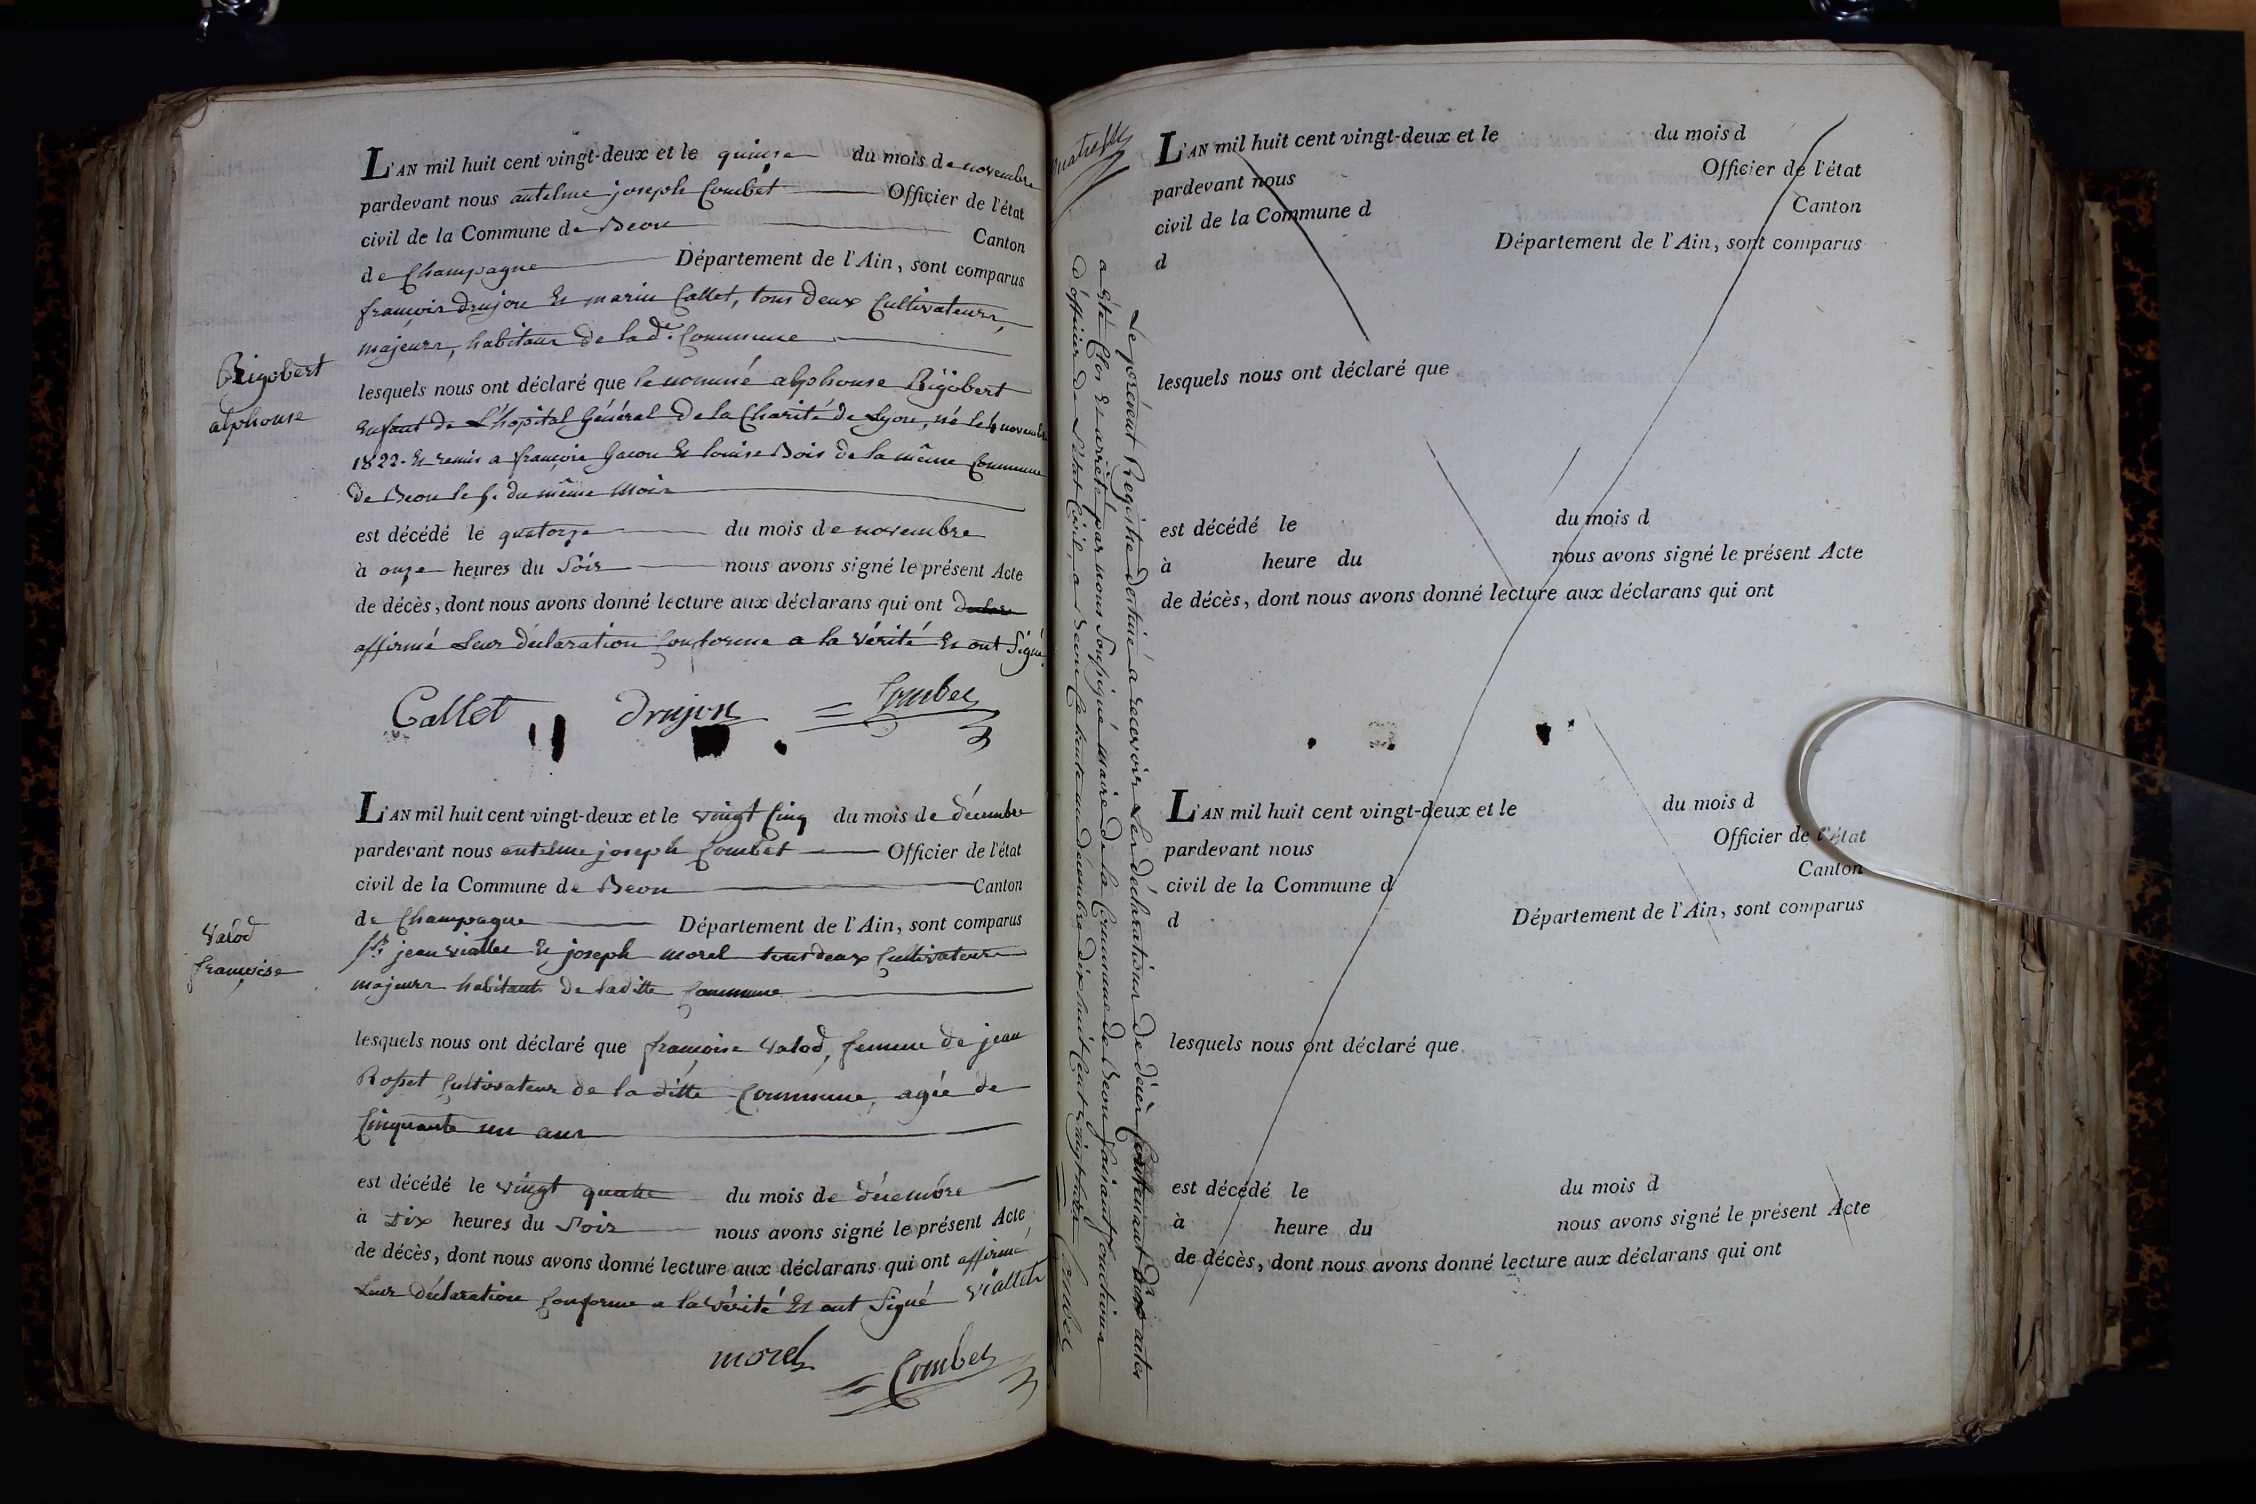 L'AN mil huit cent vingt-deux et le quinze du mois de novembre
pardevant nous antelme joseph Combet Officier de l'état
civil de la Commune de Beon Canton
de Champagne Département de l'Ain, sont comparus
françois drujon Et marin Callet, tous deux Cultivateurs,
majeurs, habitans de lad.e Commune
Rigobert
alphonse
lesquels nous ont déclaré que le nommé alphonse Rigobert
Enfant de L'hopital Général De la Charité de Lyon, né le 4 novembre
1822. Et remis a françois Gacon Et louise Bois de la même Commune
de Beon le du même mois
est décédé le quatorze du mois de novembre
à onze heures du Soir nous avons signé le présent Acte
de décès, dont nous avons donné lecture aux déclarans qui ont
affirmé Leur déclaration Conforme a la vérité Et ont Signé
Callet drujon Combet
L'AN mil huit cent vingt-deux et le vingt Cinq du mois de décembre
pardevant nous antelme joseph Combet Officier de l'état
civil de la Commune de Beon Canton
de Champagne Département de l'Ain, sont comparus
Valod
françoise
jean viallet Et joseph morel tous deux Cultivateurs
majeurs habitants de laditte Commune
lesquels nous ont déclaré que françoise Valod, femme de jean
Rosset Cultivateur de la ditte Commune, agée de
Cinquante un ans
est décédé le vingt quatre du mois de décembre
à Dix heures du Soir nous avons signé le présent Acte
de décès, dont nous avons donné lecture aux déclarans qui ont affirmé
Leur déclaration Conforme a la vérité Et ont Signé viallet
morel Combet
Le présent Registre destiné a recevoir Les déclarations De décès Contenant Dix actes
a été Clos Et arrêté par nous Soussigné Maire De la Commune de Beon faisant fonctions
d'officier De l'état Civil, a Beon le trente un décembre dix huit Cent vingt deux Combet
L'AN mil huit cent vingt-deux et le du mois d
pardevant nous Officier de l'état
civil de la Commune d Canton
d Département de l'Ain, sont comparus
lesquels nous ont déclaré que
est décédé le du mois d
à heure du nous avons signé le présent Acte
de décès, dont nous avons donné lecture aux déclarans qui ont
L'AN mil huit cent vingt-deux et le du mois d
pardevant nous Officier de l'état
civil de la Commune d Canton
d Département de l'Ain, sont comparus
lesquels nous ont déclaré que
est décédé le du mois d
à heure du nous avons signé le présent Acte
de décès, dont nous avons donné lecture aux déclarans qui ont